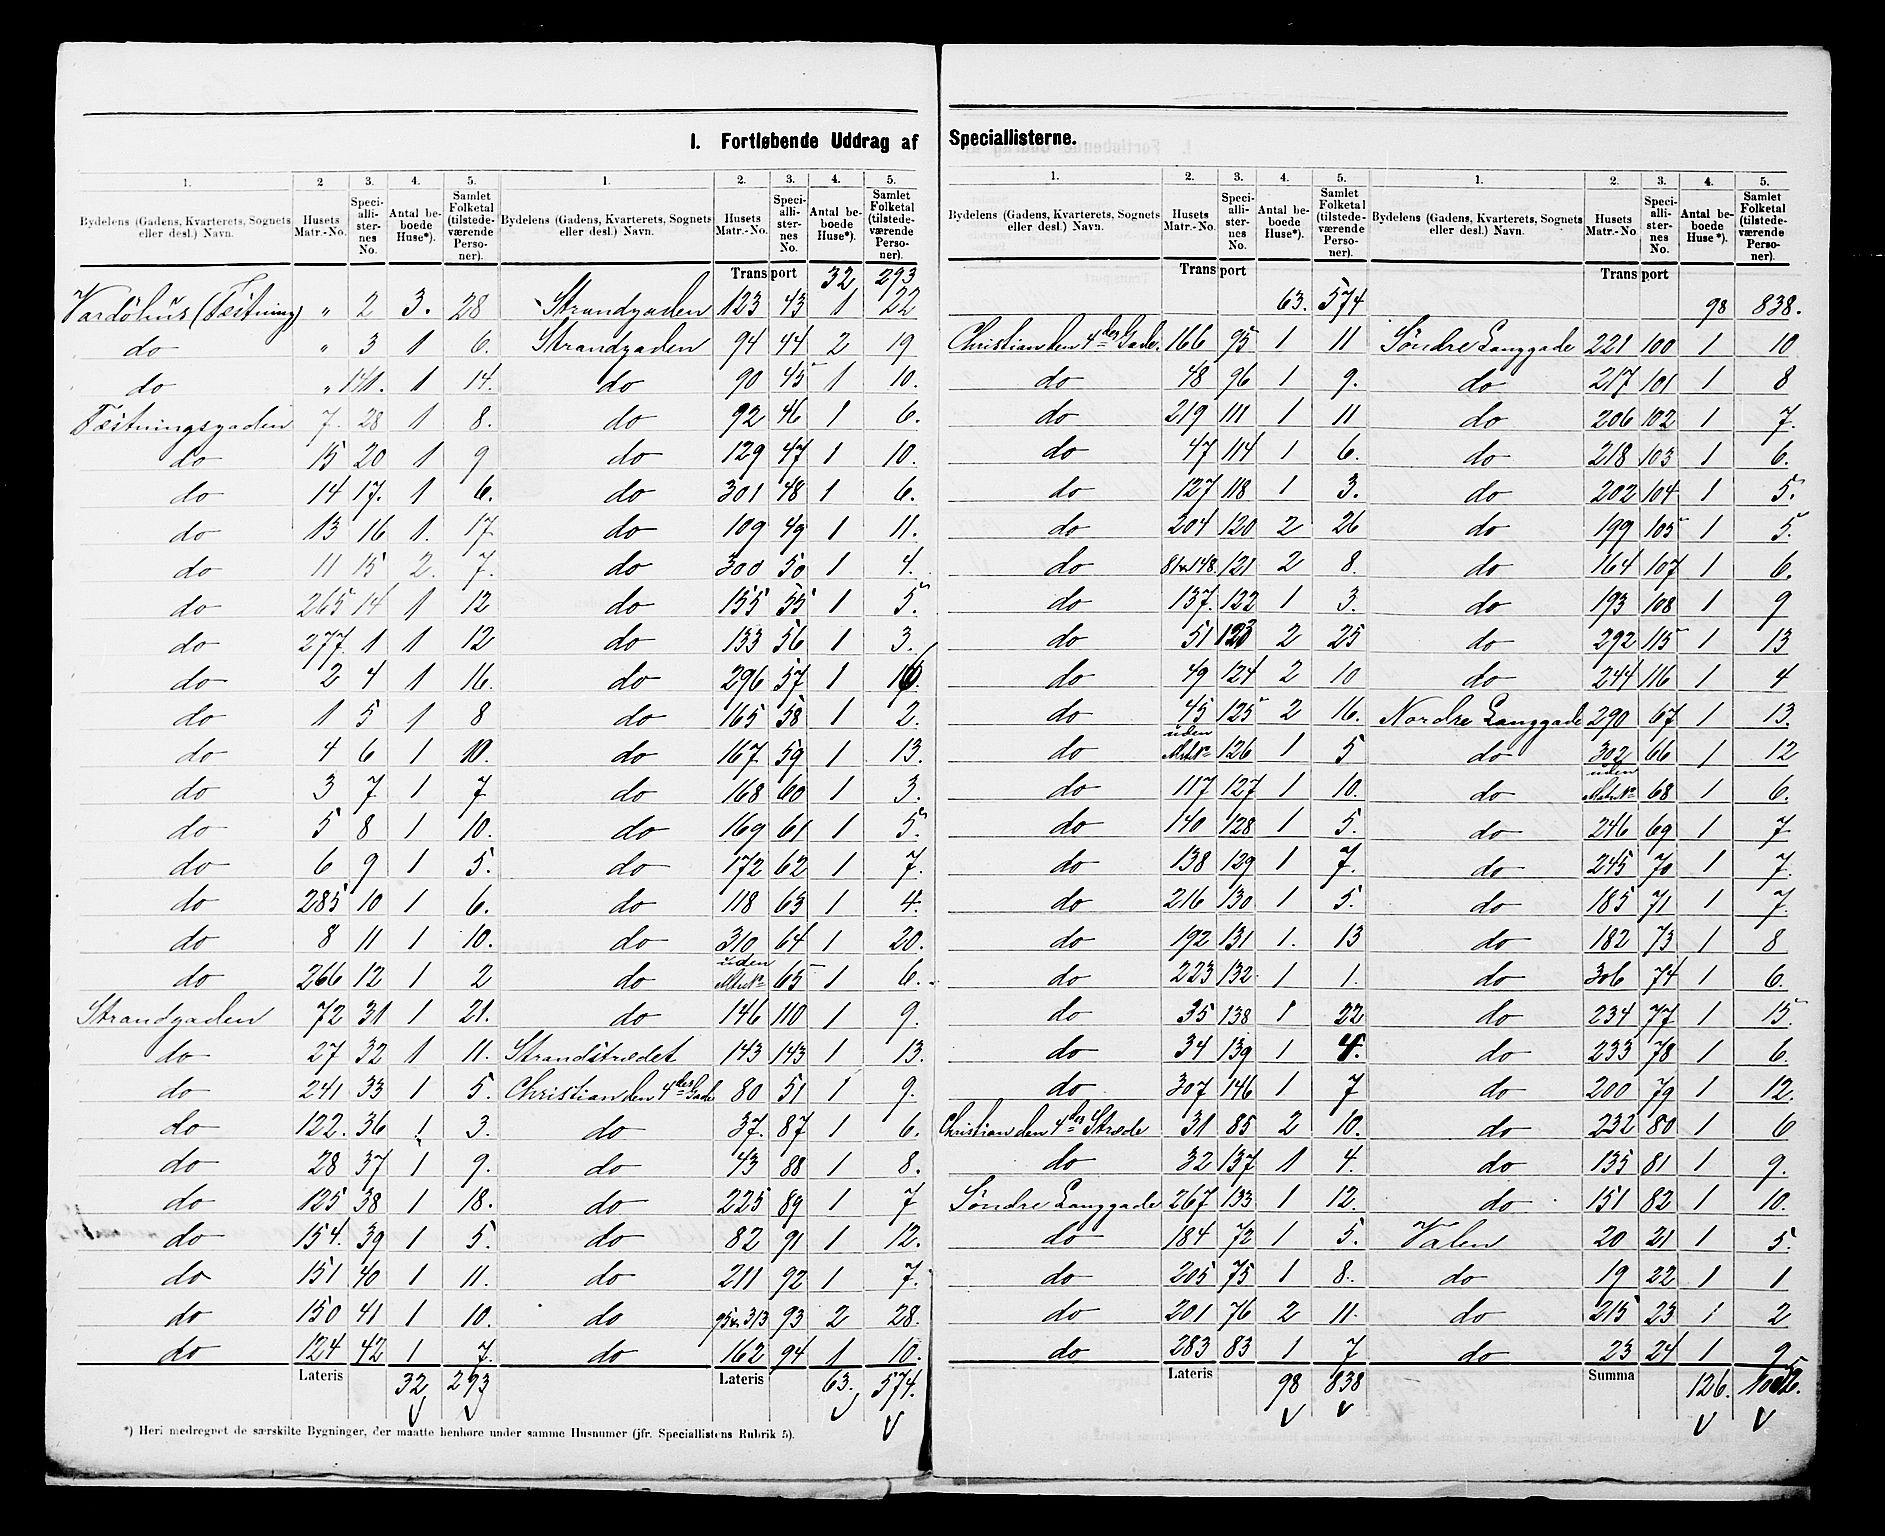 I. Fortløbende Uddrag af Speciallisterne.
1. 2 3. 4. 5. 1. 2. 3. 4. 5.
Bydelens (Gadens, Kvarterets, Sognets eller desl.) Navn. Husets Matr.-No. Speciallisternes No. Antal beboede Huse*). Samlet Folketal (tilstedeværende Personer). Bydelens (Gadens, Kvarterets, Sognets eller desl.) Navn. Husets Matr.-No. Speciallisternes No. Antal beboede Huse*). Samlet Folketal (tilstedeværende Personer).
Transport 32 293
Vardöhus (Fæstning) " 2 3. 28 Strandgaden 123 43 1 22
do " 3 1 6. Strandgaden 94 44 2 19
do " 141. 1 14. do 90 45 1 10.
Fæstningsgaden 7. 28 1 8. do 92 46 1 6.
do 15 20 1 9 do 129 47 1 10.
do 14 17. 1 6. do 301 48 1 6.
do 13 16 1. 17 do 109 49 1 11.
do 11 15 2. 7. do 300 50 1 4.
do 265 14 1 12 do 155 55 1 5.
do 277. 1 1 12 do 133 56 1 3.
do 2 4 1 16. do 296 57 1
do 1 5 1 8 do 165 58 1 2.
do 4 6 1 10. do 167 59 1 13.
do 3 7 1 7 do 168 60 1 3.
do 5 8 1 10. do 169 61 1 5.
do 6 9 1 5. do 172 62 1 7.
do 285 10 1 6. do 118 63 1 4.
do 8 11 1 10. do 310 64 1 20.
do 266 12 1 2 do uden Matr.No 65 1 6.
Strandgaden 72 31 1 21. do 146 110 1 9.
do 27 32 1 11. Strandstrædet 143 143 1 13.
do 241 33 1 5. Christian den 4des Gade 80 51 1 9.
do 122. 36 1 3. do 37. 87 1 6.
do 28 37 1 9. do 43 88 1 8.
do 125 38 1 18. do 225 89 1 7
do 154. 39 1 5. do 82 91 1 12.
do 151 40 1 11. do 211 92 1 7.
do 150 41 1 10. do 95 & 313 93 2 28.
do 124 42 1 7. do 162 94 1 10.
Lateris 32 293 Lateris 63. 574.
*) Heri medregnet de særskilte Bygninger, der maatte henhøre under samme Husnumer (jfr. Speciallistens Rubrik 5).
1. 2. 3. 4. 5. 1. 2. 3. 4. 5.
Bydelens (Gadens, Kvarterets, Sognets eller desl.) Navn. Husets Matr.-No. Speciallisternes No. Antal beboede Huse*). Samlet Folketal (tilstedeværende Personer). Bydelens (Gadens, Kvarterets, Sognets eller desl.) Navn. Husets Matr.-No. Speciallisternes No. Antal beboede Huse*). Samlet Folketal (tilstedeværende Personer).
Transport 63. 574 Transport 98 838.
Christian den 4des Gade. 166 95 1 11 Söndre Langgade 221 100 1 10
do 48 96 1 9. do 217 101 1 8
do 219 111 1 11 do 206 102 1 7.
do 47 114 1 6. do 218 103 1 6.
do 127 118 1 3. do 202 104 1 5.
do 204 120 2 26 do 199 105 1 5.
do 81 & 148. 121 2 8. do 164 107 1 6.
do 137. 122 1 3. do 193 108 1 9
do 51 123 2 25 do 292 115 1 13
do 49 124 2 10 do 244 116 1 4
do 45 125 2 16. Nordre Langgade 290 67 1 13.
do uden Matr.No 126 1 5 do 302 66 1 12
do 117 127 1 10. do uden Matr.No 68 1 6.
do 140 128 1 5. do 246 69 1 7
do 138 129 1 7. do 245 70 1 7.
do 216 130 1 5. do 185 71 1 7.
do 192 131 1. 13 do 182 73 1 8
do 223 132. 1 1. do 306 74 1 6.
do 35 138 1 22 do 234 77 1 15
do 34 139 1 4. do 233 78 1 6.
do 307 146 1 7 do 200 79 1 12.
Christian den 4des Stræde 31 85 2 10. do 232 80 1 6
do 32 137 1 4. do 135 81 1 9.
Söndre Langgade 267 133 1 12. do 151 82 1 10.
do 184 72 1 5. Valen 20 21 1 5.
do 205 75 1 8. do 19 22 1 1
do 201 76 2 11. do 215 23 1 2
do 283 83 1 7 do 23 24 1 9
Lateris 98 838 Summa 126.